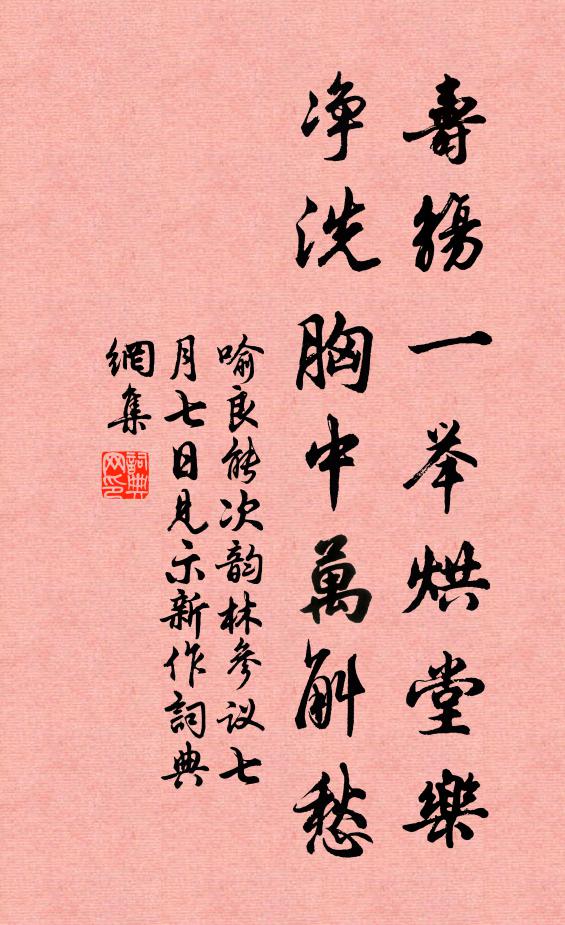 壽觴一举烘堂樂
净洗胸中萬斛愁
喻良能次韵林参议七
月七日見示新作詞典
網集
詞典网印